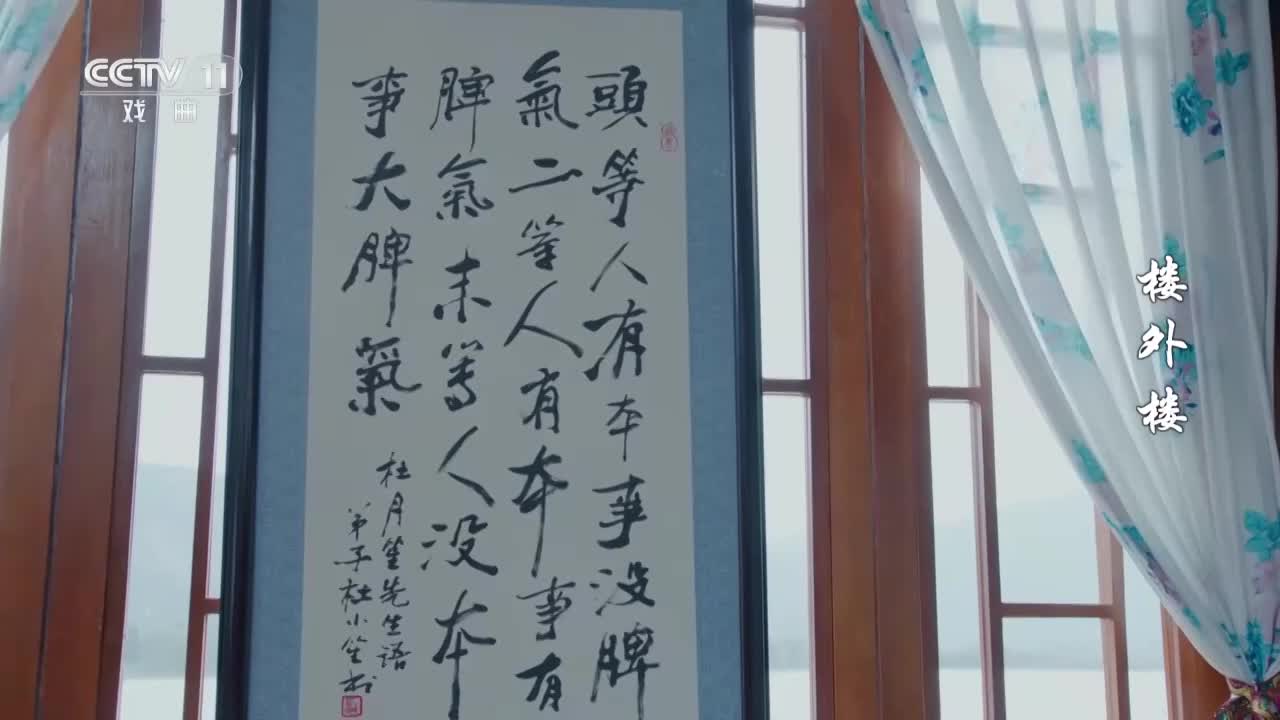 CCTV 11
戏曲
頭等人有本事没脾
氣二等人有本事有
脾氣末等人没本
事大脾氣
杜月笙先生語
弟子杜小笙
楼外楼